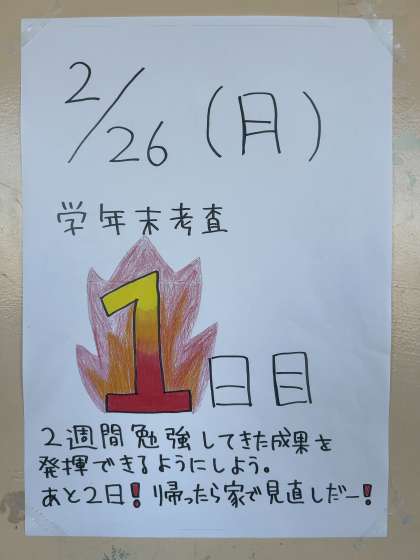 2/26(月)
学年末考査
1日目
2週間勉強してきた成果を
発揮できるようにしよう。
あと2日!帰ったら家で見直しだー!